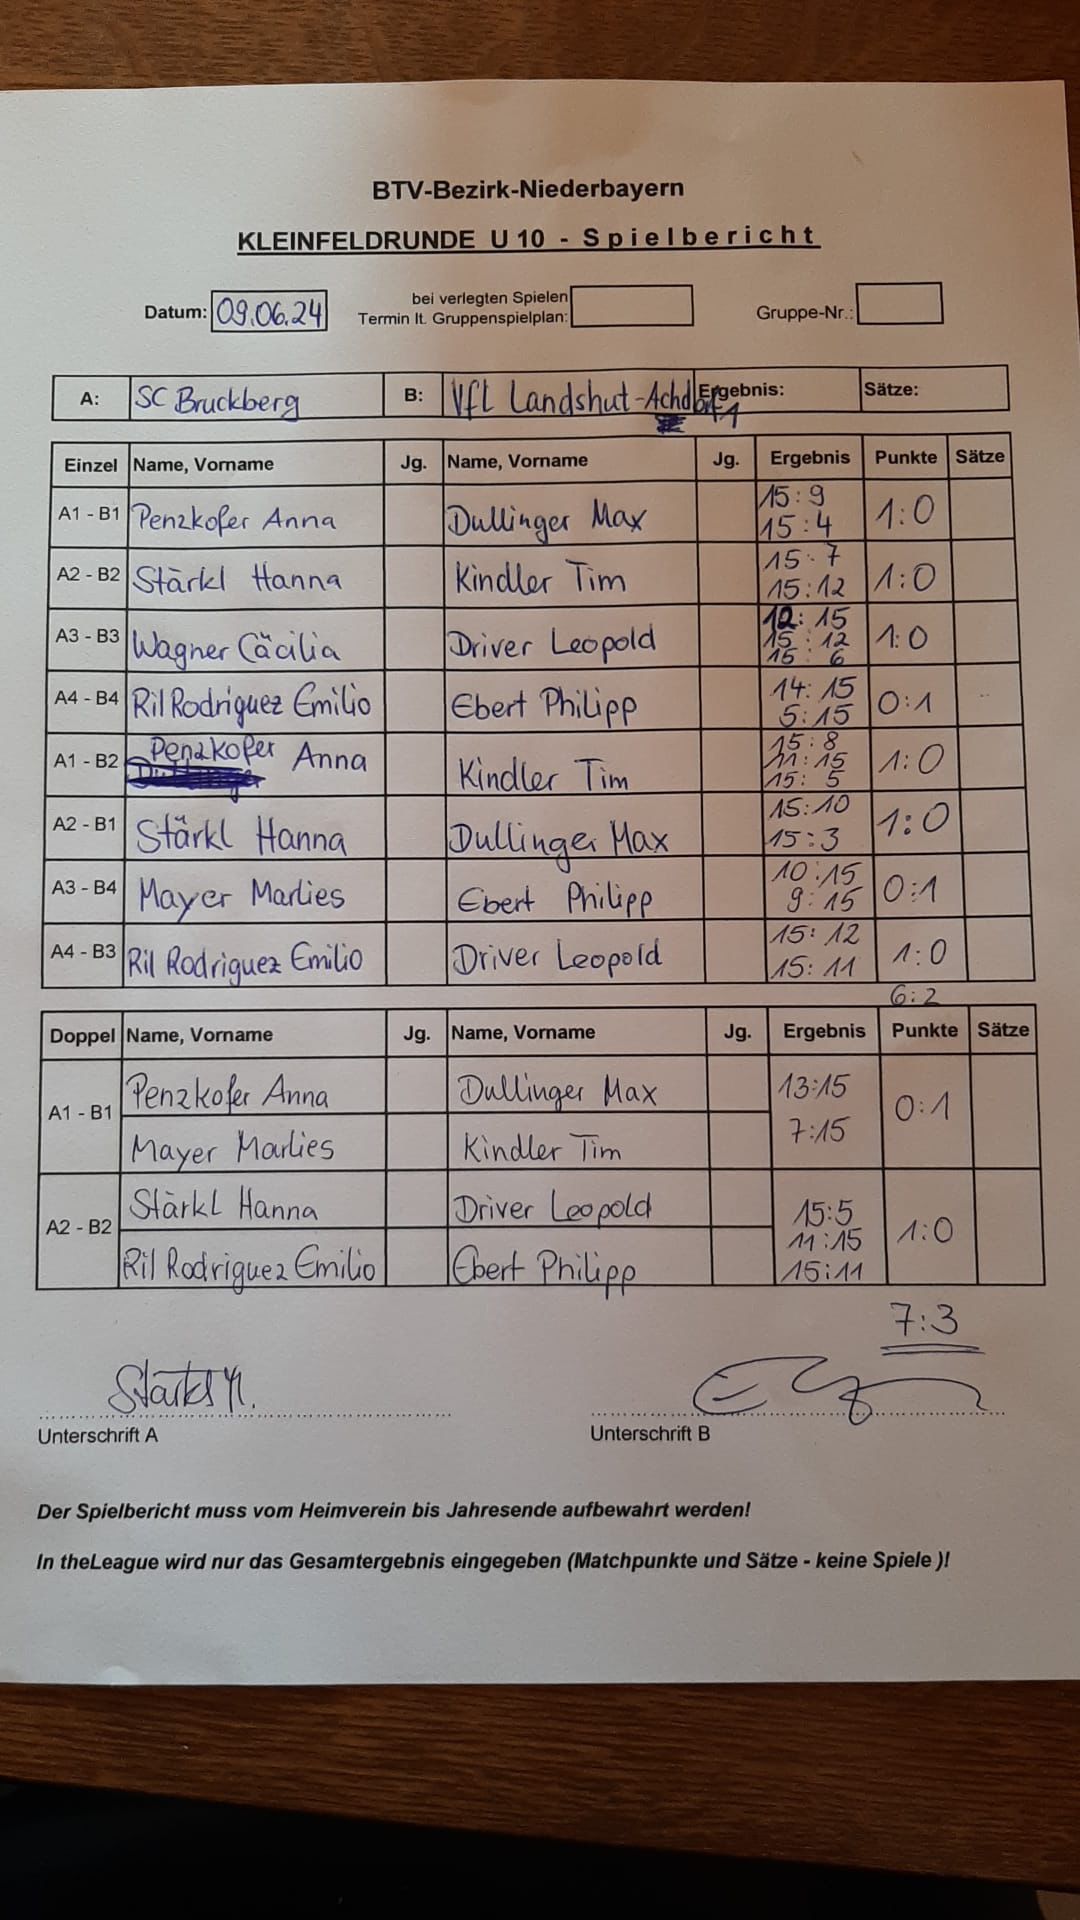 BTV-Bezirk-Niederbayern
KLEINFELDRUNDE U 10 - Spielbericht
Datum: 09.06.24 bei verlegten Spielen Termin lt. Gruppenspielplan: Gruppe-Nr.:
A: SC Bruckberg B: VfL Landshut-Achdorf 1 Ergebnis: Sätze:
Einzel Name, Vorname Jg. Name, Vorname Jg. Ergebnis Punkte Sätze
A1 - B1 Penzkofer Anna Dullinger Max 15:9 15:4 1:0
A2 - B2 Stärkl Hanna Kindler Tim 15:7 15:12 1:0
A3 - B3 Wagner Cäcilia Driver Leopold 12:15 15:12 15:6 1:0
A4 - B4 Ril Rodriguez Emilio Ebert Philipp 14:15 5:15 0:1
A1 - B2 Penzkofer Anna Kindler Tim 15:8 11:15 15:5 1:0
A2 - B1 Stärkl Hanna Dullinger Max 15:10 15:3 1:0
A3 - B4 Mayer Marlies Ebert Philipp 10:15 9:15 0:1
A4 - B3 Ril Rodriguez Emilio Driver Leopold 15:12 15:11 1:0
6:2
Doppel Name, Vorname Jg. Name, Vorname Jg. Ergebnis Punkte Sätze
A1 - B1 Penzkofer Anna Dullinger Max 13:15 0:1
Mayer Marlies Kindler Tim 7:15
A2 - B2 Stärkl Hanna Driver Leopold 15:5 11:15 1:0
Ril Rodriguez Emilio Ebert Philipp 15:11
7:3
Unterschrift A Unterschrift B
Der Spielbericht muss vom Heimverein bis Jahresende aufbewahrt werden!
In theLeague wird nur das Gesamtergebnis eingegeben (Matchpunkte und Sätze - keine Spiele )!